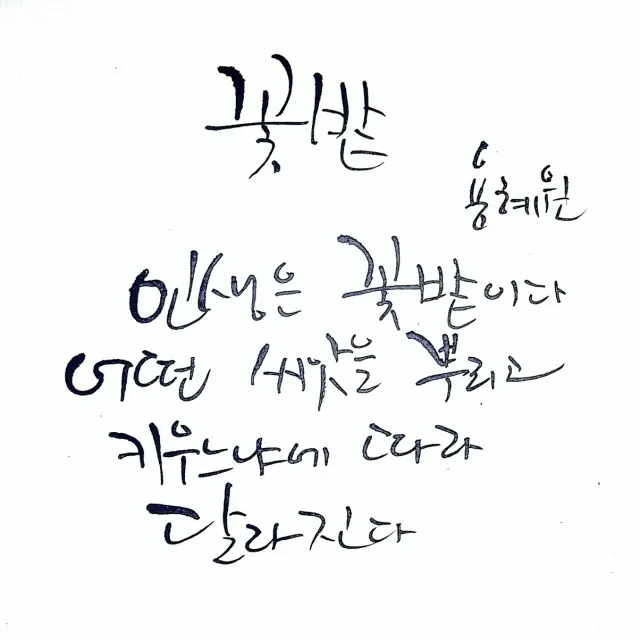 꽃밭
용혜원
인생은 꽃밭이다
어떤 씨앗을 뿌리고
키우느냐에 따라
달라진다